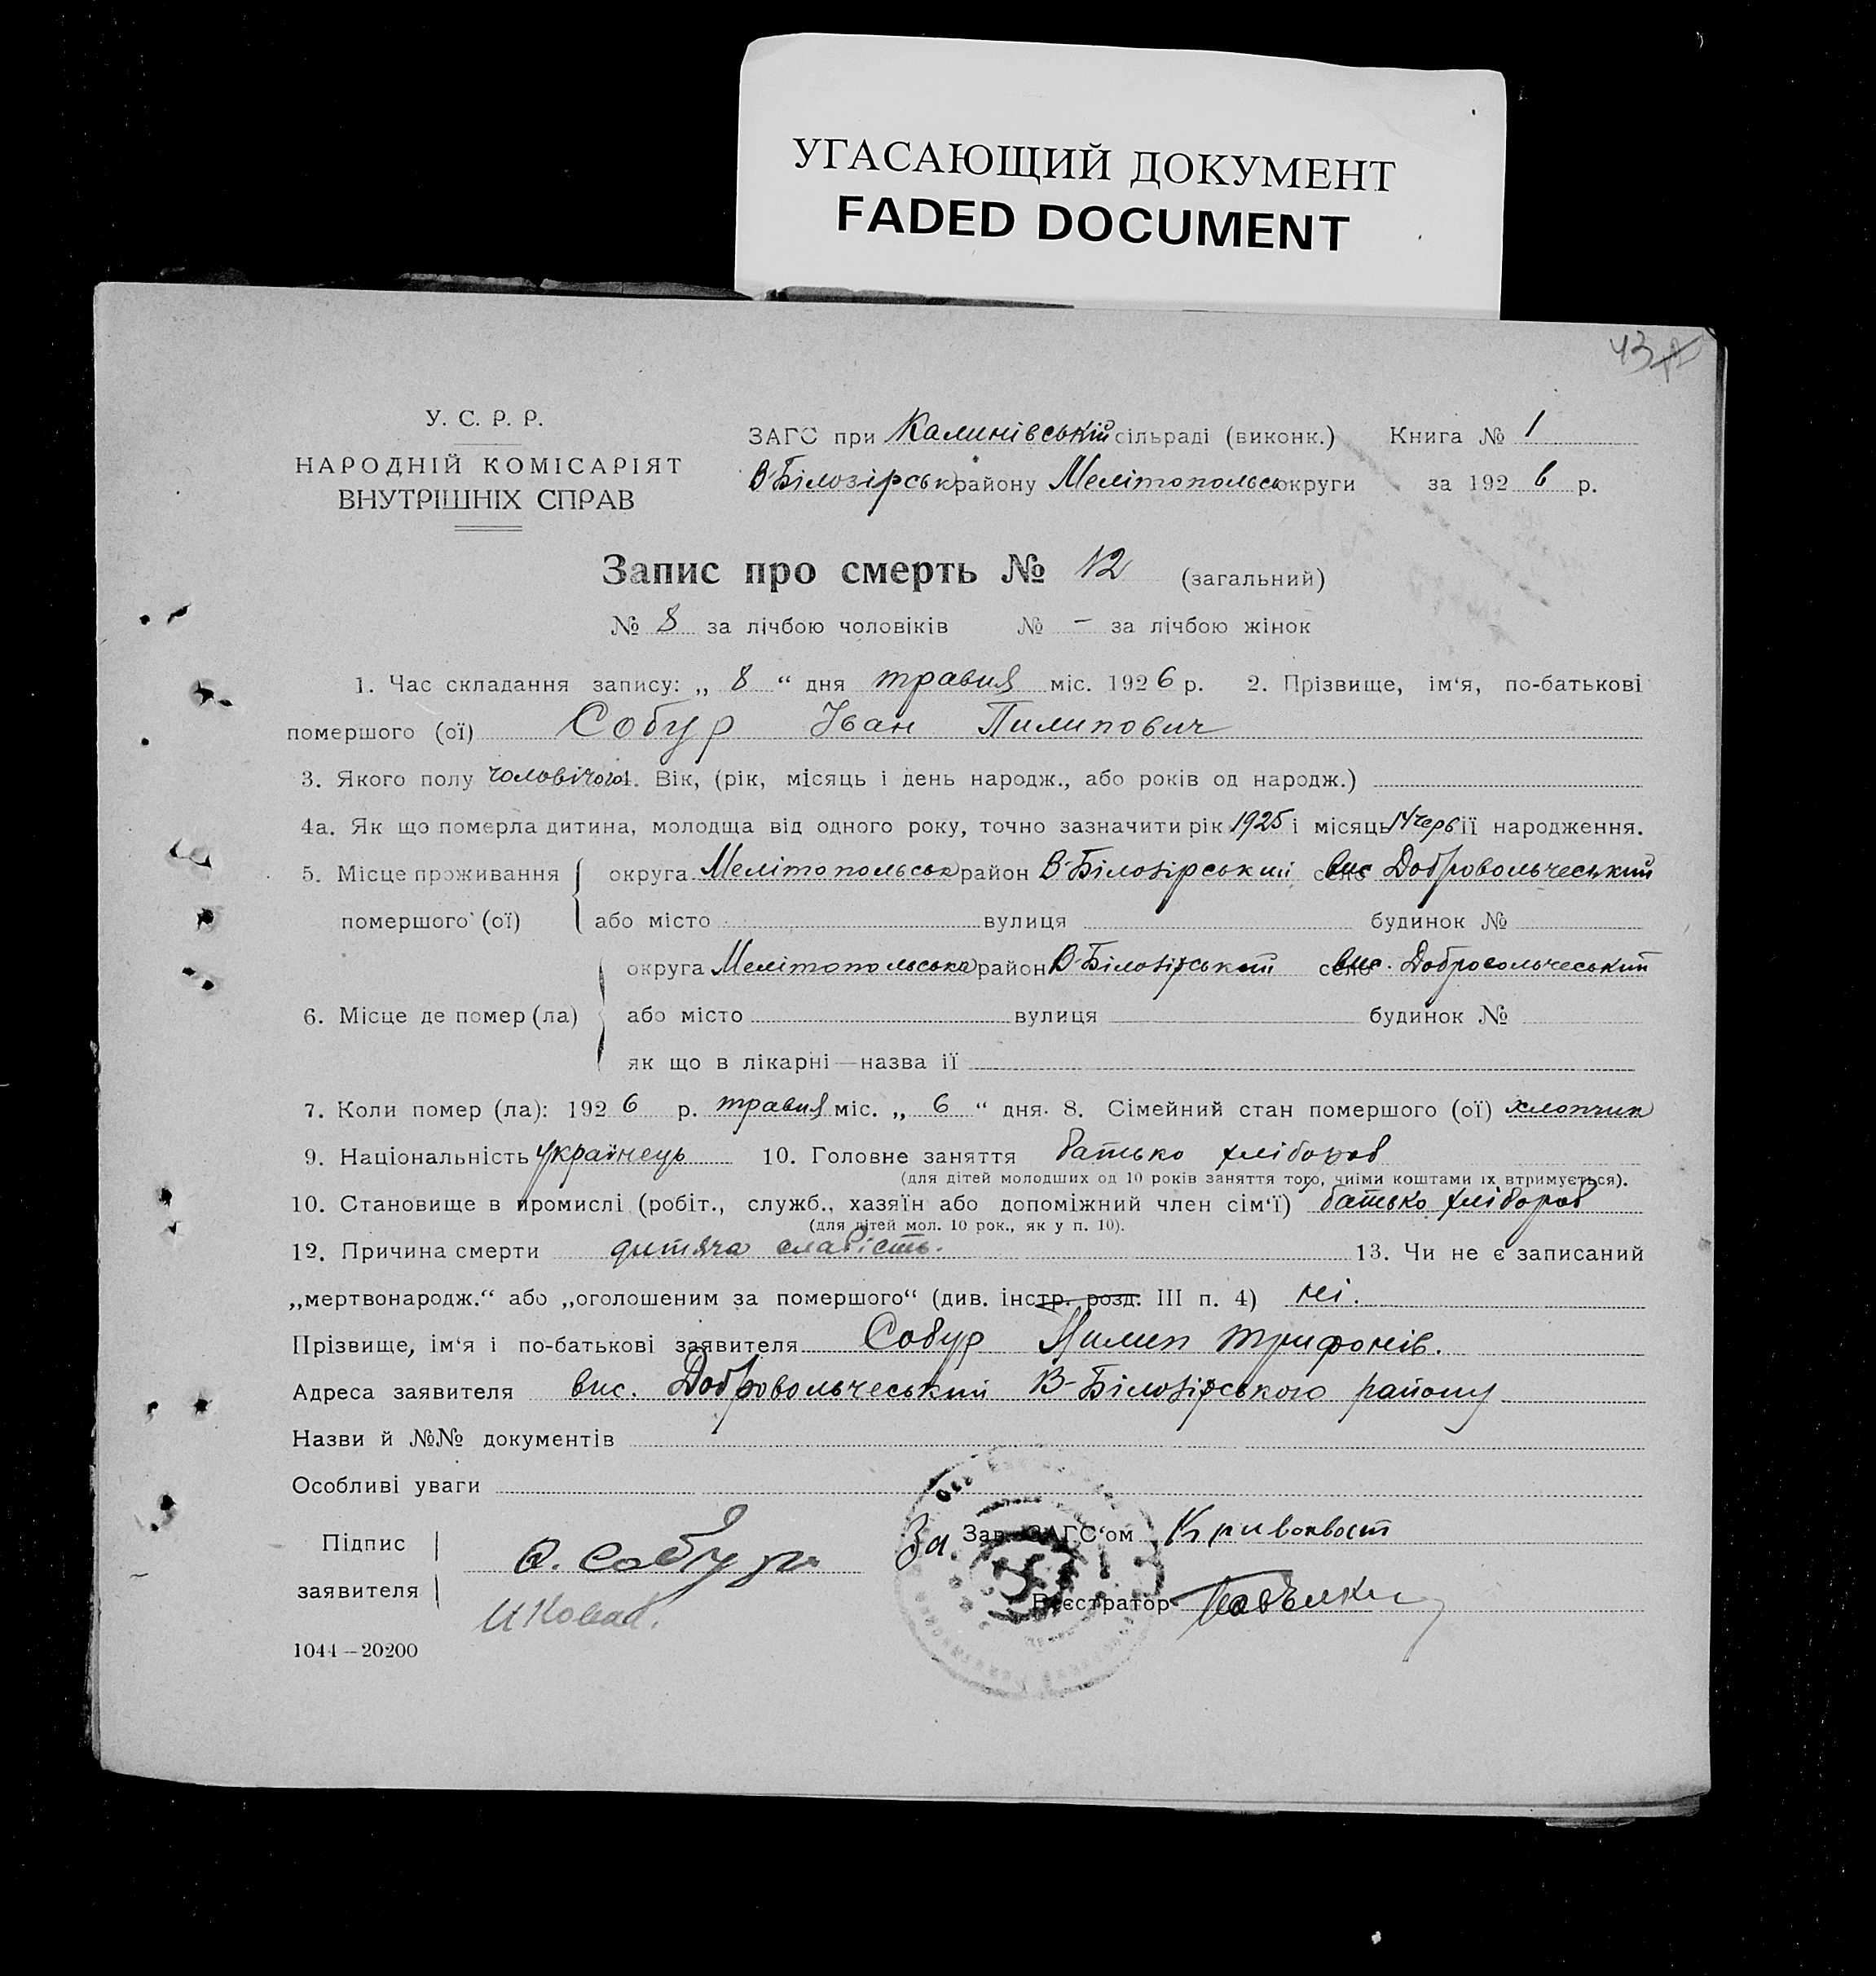 УГАСАЮЩИЙ ДОКУМЕНТ
FADED DOCUMENT
43
У. С. Р. Р.
НАРОДНІЙ КОМІСАРІЯТ
ВНУТРІШНІХ СПРАВ
ЗАГС при Калинівській сільраді (виконк.) Книга № 1
В-Білозірськ району Мелітопольсь округи за 192 6 р.
Запис про смерть № 12 (загальний)
№ 8 за лічбою чоловіків № - за лічбою жінок
1. Час складання запису: „ 8 “ дня травня міс. 192 6 р. 2. Прізвище, ім‘я, по-батькові
помершого (ої) Собур Іван Пилипович
3. Якого полу чоловічого 4. Вік, (рік, місяць і день народж., або років од народж.)
4а. Як що померла дитина, молодща від одного року, точно зазначити рік 1925 і місяць 14 черв її народження.
5. Місце проживання округа Мелітопольськ район В-Білозірський село вис Добровольчеський
помершого (ої) або місто вулиця будинок №
округа Мелітопольська район В-Білозірський село вис. Добровольчеський
6. Місце де помер (ла) або місто вулиця будинок №
як що в лікарні—назва її
7. Коли помер (ла): 192 6 р. травня міс. „ 6 “ дня. 8. Сімейний стан помершого (ої) хлопчик
9. Національність українець 10. Головне заняття батько хлібороб
(для дітей молодших од 10 років заняття того, чиїми коштами їх втримується).
10. Становище в промислі (робіт., служб., хазяїн або допоміжний член сім‘ї) батько хлібороб
(для дітей мол. 10 рок., як у п. 10).
12. Причина смерти дитяча слабість. 13. Чи не є записаний
„мертвонародж.“ або „оголошеним за помершого“ (див. інстр. розд. III п. 4) ні.
Прізвище, ім‘я і по-батькові заявителя Собур Пилип Трифонів.
Адреса заявителя вис. Добровольчеський В-Білозірського району
Назви й №№ документів
Особливі уваги
Підпис
заявителя
За Зав. ЗАГС‘ом Кривохвост
Реєстратор
1044—20200